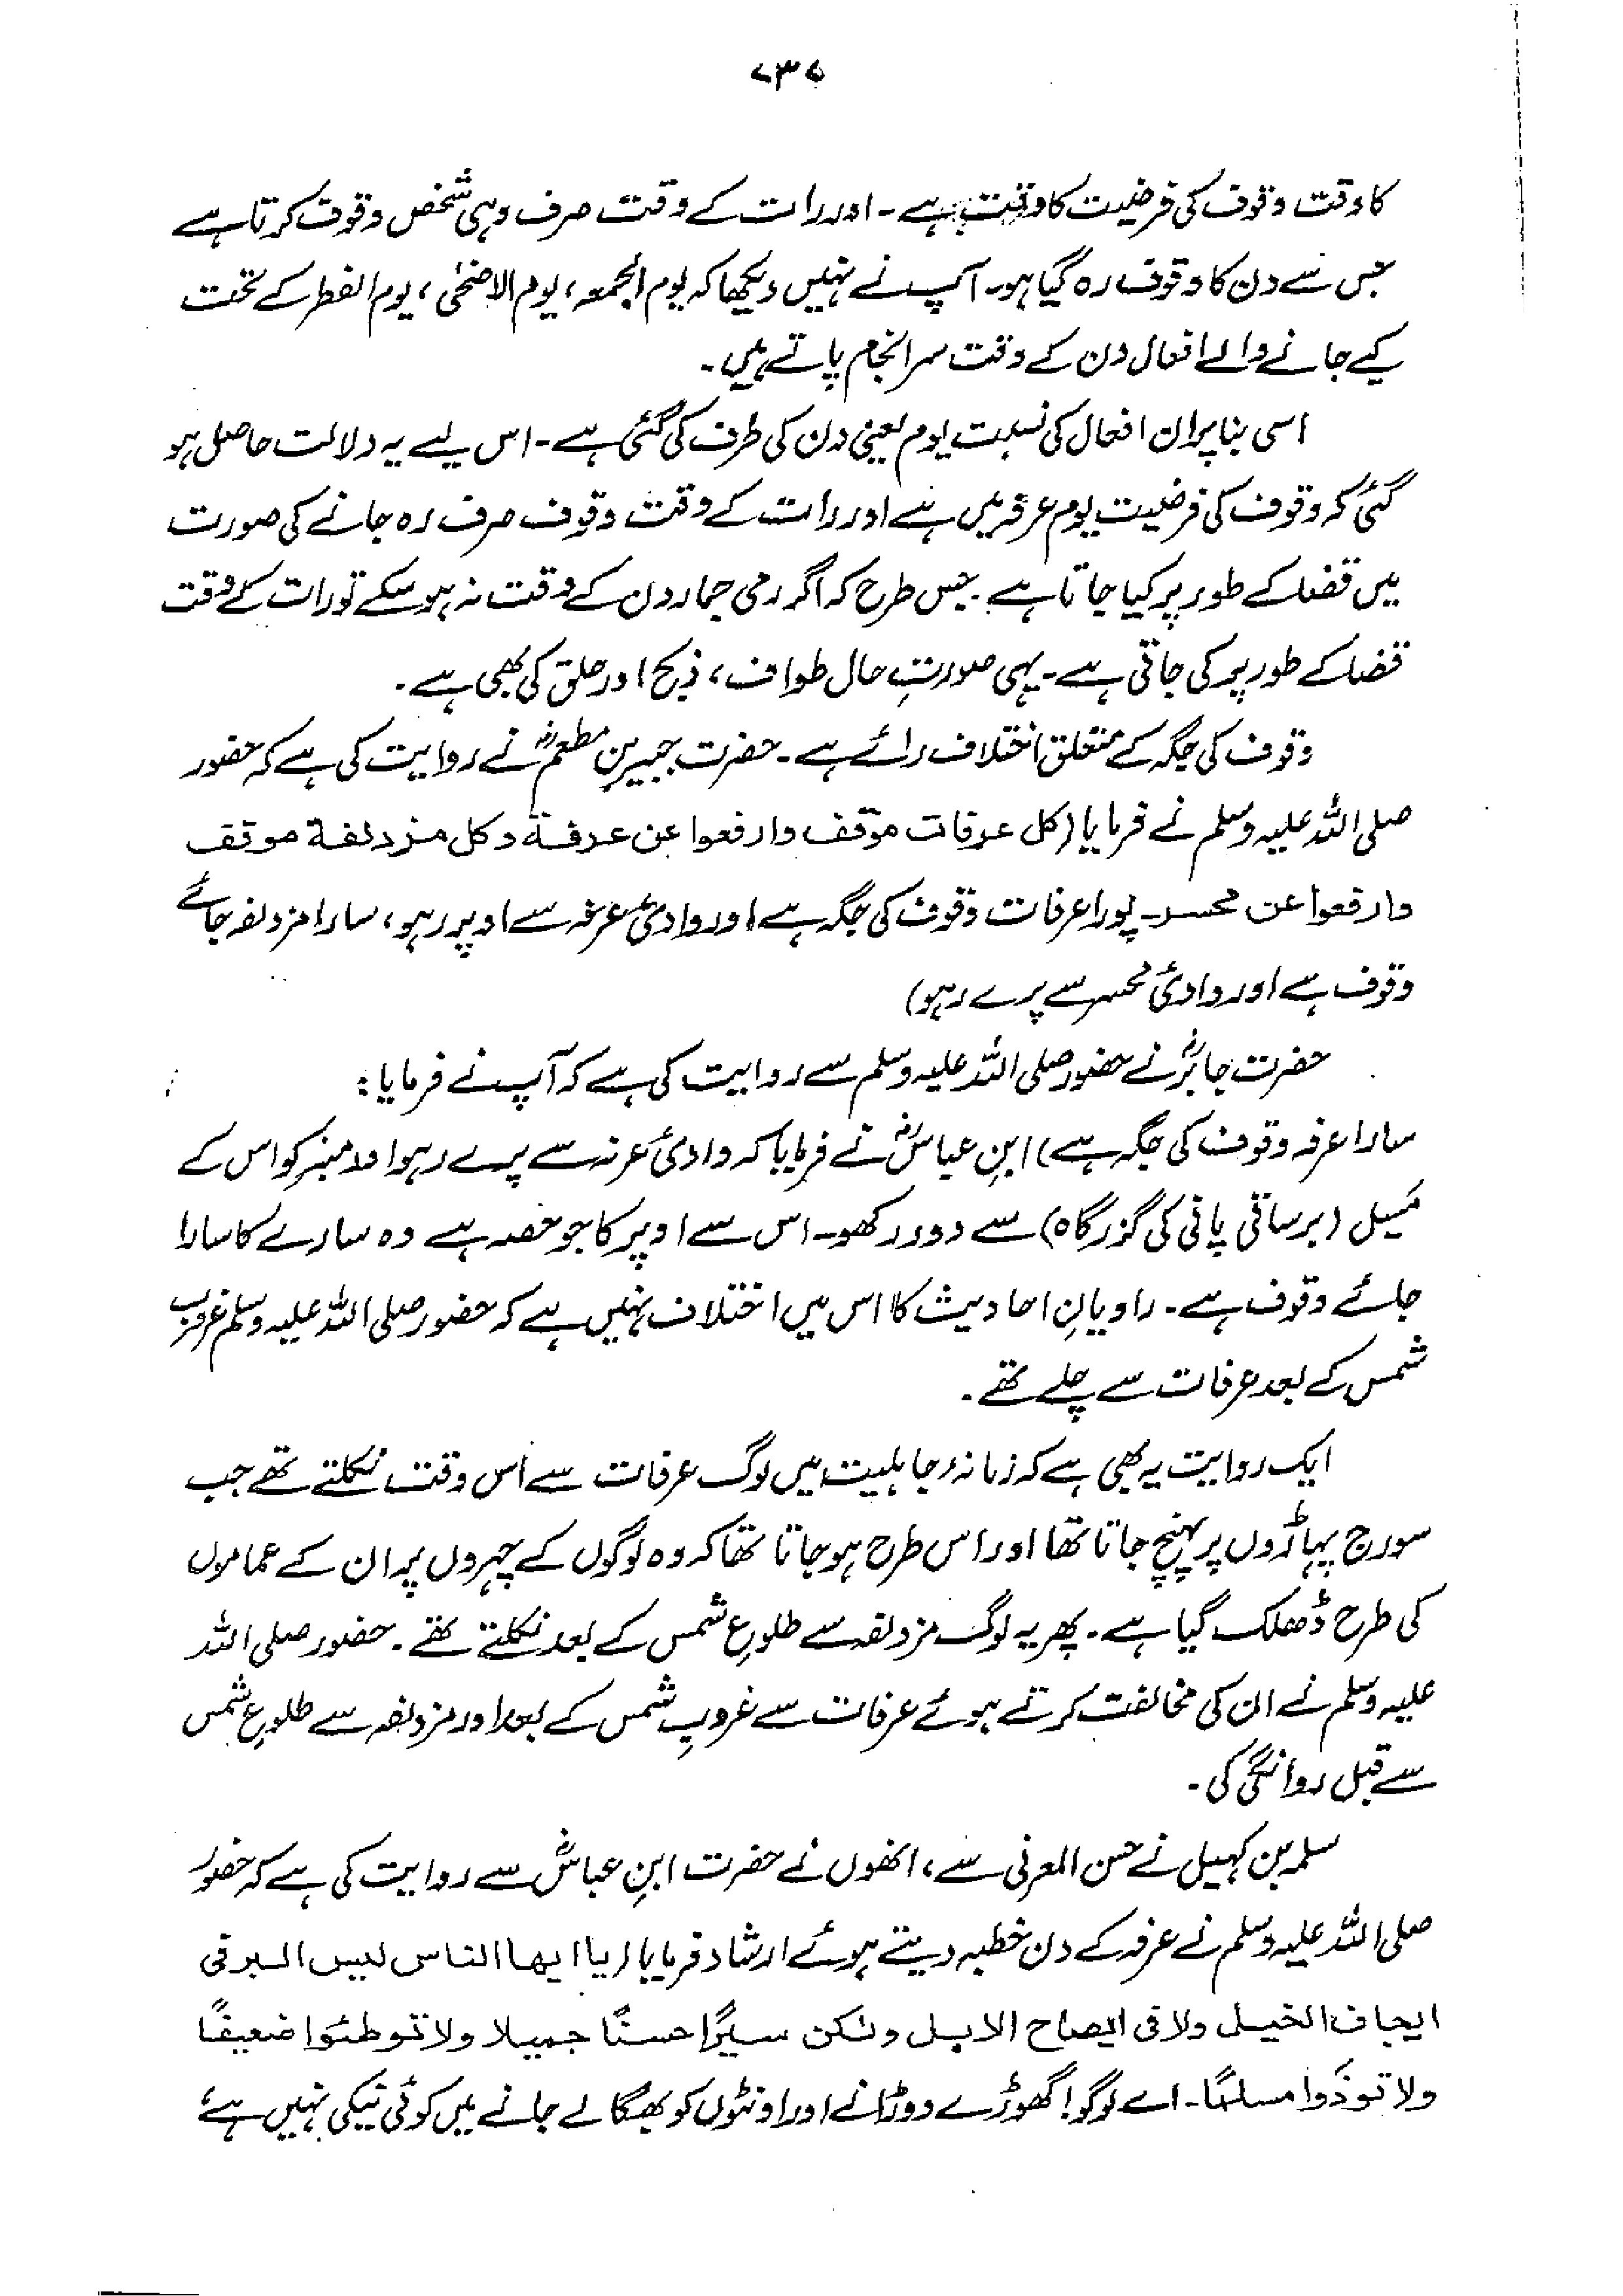 ۷۳۵
کا وقت وقوف کی فرضیت کا وقت ہے۔ اور رات کے وقت صرف وہی شخص وقوف کرتا ہے
جس سے دن کا وقوف رہ گیا ہو۔ آپ نے نہیں دیکھا کہ یوم الجمعہ، یوم الاضحٰی، یوم الفطر کے تحت
کیے جانے والے افعال دن کے وقت سرانجام پاتے ہیں۔
اسی بنا پر ان افعال کی نسبت یوم یعنی دن کی طرف کی گئی ہے۔ اس لیے یہ دلالت حاصل ہو
گئی کہ وقوف کی فرضیت یوم عرفہ میں ہے اور رات کے وقت وقوف صرف رہ جانے کی صورت
میں قضا کے طور پر کیا جاتا ہے۔ جس طرح کہ اگر رمی جمار دن کے وقت نہ ہو سکے تو رات کے وقت
قضا کے طور پر کی جاتی ہے۔ یہی صورتِ حال طواف، ذبح اور حلق کی بھی ہے۔
وقوف کی جگہ کے متعلق اختلاف رائے ہے۔ حضرت جبیر بن مطعمؓ نے روایت کی ہے کہ حضور
صلی اللہ علیہ وسلم نے فرمایا (کل عرفات موقف وارفعوا عن عرفة وکل مزدلفة موقف
وارفعوا عن محسر۔ پورا عرفات وقوف کی جگہ ہے اور وادیٔ عرنہ سے اوپر رہو، سارا مزدلفہ جائے
وقوف ہے اور وادیٔ محسر سے پرے رہو)
حضرت جابرؓ نے حضور صلی اللہ علیہ وسلم سے روایت کی ہے کہ آپ نے فرمایا:
سارا عرفہ وقوف کی جگہ ہے) ابنِ عباسؓ نے فرمایا کہ وادیٔ عرنہ سے پرے رہو اور منبر کو اس کے
مَسیل (برساتی پانی کی گزرگاہ) سے دور رکھو۔ اس سے اوپر کا جو حصہ ہے وہ سارے کا سارا
جائے وقوف ہے۔ راویانِ احادیث کا اس میں اختلاف نہیں ہے کہ حضور صلی اللہ علیہ وسلم غروب
شمس کے بعد عرفات سے چلے تھے۔
ایک روایت یہ بھی ہے کہ زمانۂ جاہلیت میں لوگ عرفات سے اس وقت نکلتے تھے جب
سورج پہاڑوں پر پہنچ جاتا تھا اور اس طرح ہو جاتا تھا کہ وہ لوگوں کے چہروں پر ان کے عماموں
کی طرح ڈھلک گیا ہے۔ پھر یہ لوگ مزدلفہ سے طلوعِ شمس کے بعد نکلتے تھے۔ حضور صلی اللہ
علیہ وسلم نے ان کی مخالفت کرتے ہوئے عرفات سے غروبِ شمس کے بعد اور مزدلفہ سے طلوعِ شمس
سے قبل روانگی کی۔
سلمہ بن کہیل نے حسن العرنی سے، انھوں نے حضرت ابنِ عباسؓ سے روایت کی ہے کہ حضور
صلی اللہ علیہ وسلم نے عرفہ کے دن خطبہ دیتے ہوئے ارشاد فرمایا (یا ایھا الناس لیس البر فی
ایجاف الخیل ولا فی ایضاح الابل ولکن سیرًا حسنًا جمیلا ولا توطئوا ضعیفًا
ولا توذَوا مسلمًا۔ اے لوگو! گھوڑے دوڑانے اور اونٹوں کو بھگا لے جانے میں کوئی نیکی نہیں ہے